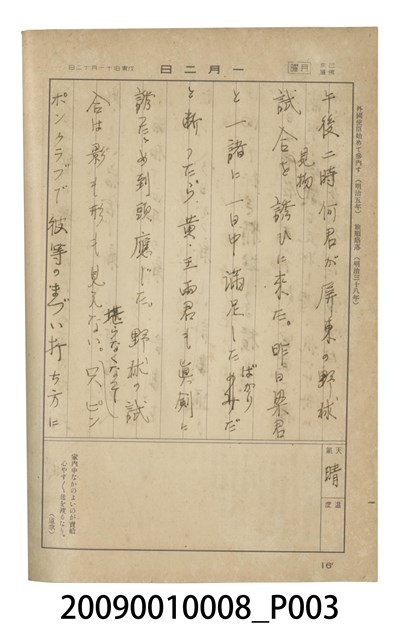 一月二日
月曜
外國使臣始めて參內す（明治五年）　旅順陷落（明治三十八年）
午後二時何君が屏東の野球
見物
試合を誘ひに來た。昨日梁君
と一諸に一日中滿足した
ばかり
だ
と斷つたら、黃、王兩君も眞劍に
誘ふため到頭應じた。野球の試
合は影も形も見えない。
堪らなくなつて
ピン
ポンクラブで彼等のまづい打ち方に
天氣
晴
溫度
家內中なかのよいのが寶船
心やすく世を渡るなり。
（道歌）
16
20090010008_P003